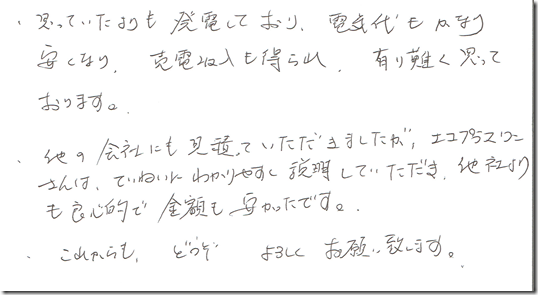 ・思っていたよりも発電しており、電気代もかなり
安くなり、売電収入も得られ、有り難く思って
おります。
・他の会社にも見積っていただきましたが、エコプラスワン
さんは、ていねいにわかりやすく説明していただき、他社より
も良心的で金額も安かったです。
・これからも、どうぞ よろしく お願い致します。